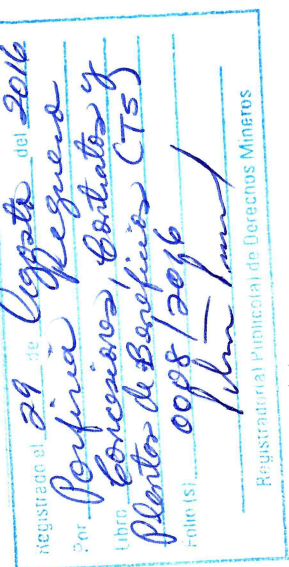 Registrado el 29 de Agosto del 2016
Por Porfiria Requena
Libro Concesiones Contratos y
Plantas de Beneficios (T5)
Folio (s) 0008/2016
Registrador(a) Publico(a) de Derechos Mineros